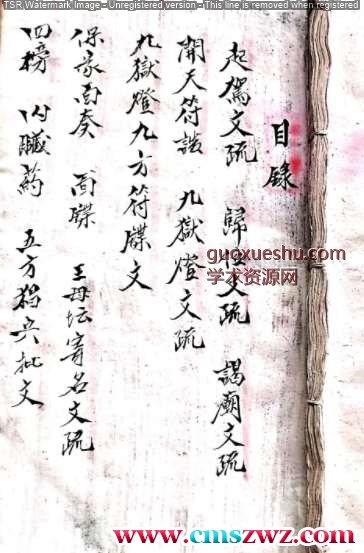 TSR Watermark Image - Unregistered version - This line is removed when registered
目錄
起駕文疏 歸位文疏 謁廟文疏
開天符誥 九獄燈文疏
九獄燈九方符牒文
保家百奏 面牒 王母坛寄名文疏
四榜 内臟葯 五方猖兵批文
guoxueshu.com
学术资源网
www.cmszwz.com